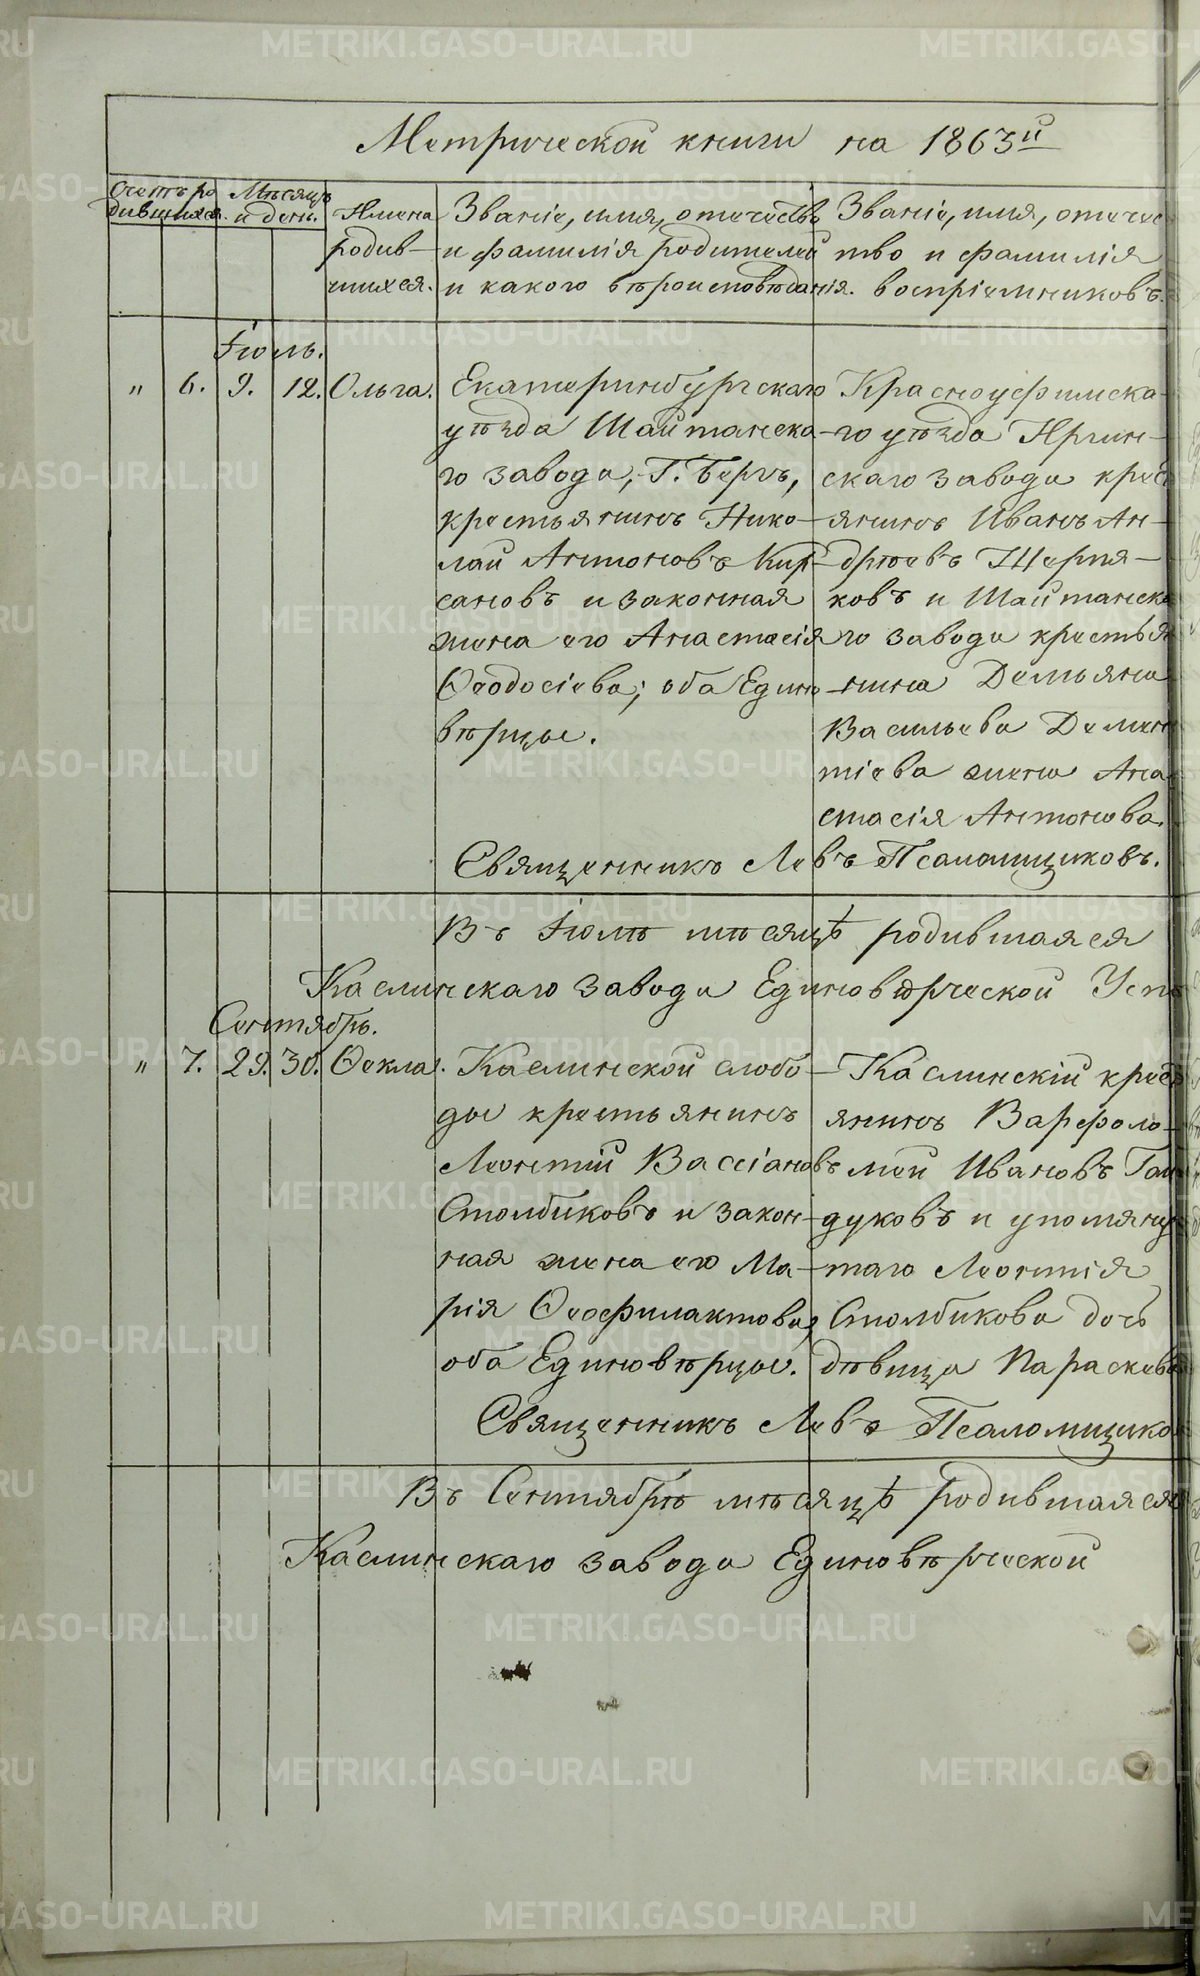 Метрической книги на 1863й
Счетъ ро
дившихся.
Мѣсяцъ
и день.
Имена
родив-
шихся.
Званіе, имя, отечество
и фамилія родителей
и какого вѣроисповѣданія.
Званіе, имя, отечес
тво и фамилія
воспріемниковъ.
Іюль.
" 6. 9. 12. Ольга.
Екатеринбургскаго
уѣзда Шайтанска-
го завода, Г. Бергъ,
крестьянинъ Нико-
лай Антоновъ Кир-
сановъ и законная
жена его Анастасія
Ѳеодосіева; оба Едино-
вѣрцы.
Красноуфимска-
го уѣзда Иргин-
скаго завода крес
янинъ Иванъ Ан-
дрѣевъ Щерпя-
ковъ и Шайтанска
го завода крестья
нина Демьяна
Васильева Демен
тіева жена Ана
стасія Антонова.
Священникъ Левъ Псаломщиковъ.
Въ Іюлѣ мѣсяцѣ родившаяся
Каслинскаго завода Единовѣрческой Успе
Сентябрь.
" 7. 29. 30. Ѳекла.
Каслинской слобо-
ды крестьянинъ
Леонтій Вассіановъ
Столбиковъ и закон-
ная жена его Ма-
рія Ѳеофилактова,
оба Единовѣрцы.
Каслинскій крест
янинъ Варѳоло-
мей Ивановъ Гай
дуковъ и упомяну
таго Леонтія
Столбикова дочь
дѣвица Параскева
Священникъ Левъ Псаломщико
Въ Сентябрѣ мѣсяцѣ родившаяся
Каслинскаго завода Единовѣрческой